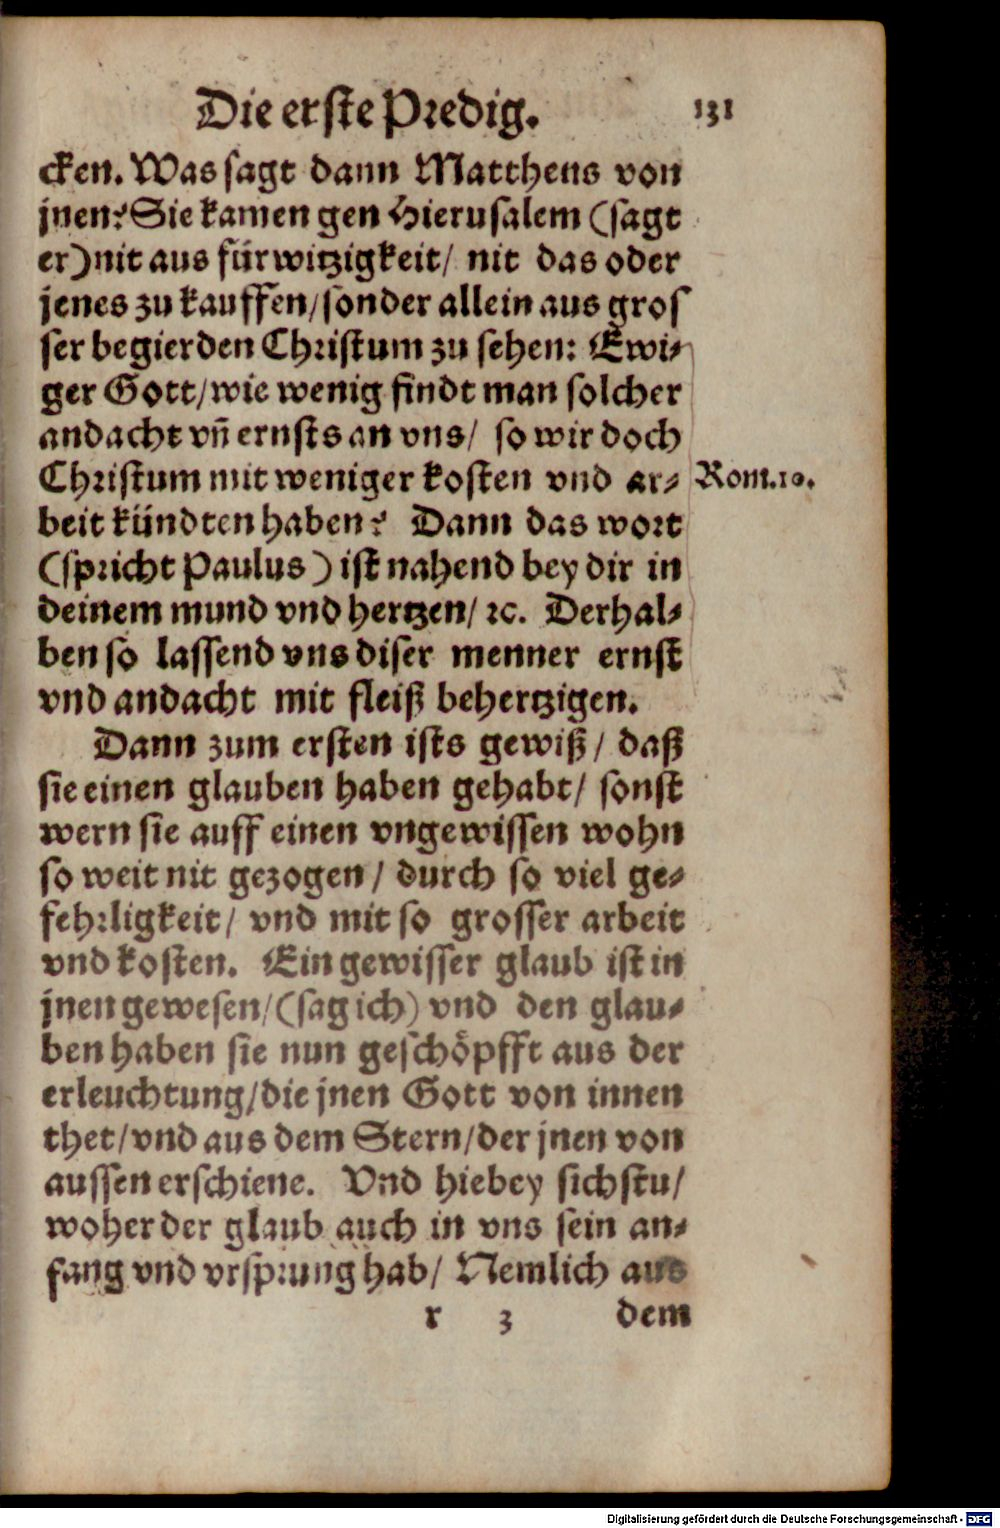 Die erste Predig. 131
cken. Was sagt dann Mattheus von
jnen? Sie kamen gen Hierusalem (sagt
er) nit aus fürwitzigkeit/ nit das oder
jenes zu kauffen/ sonder allein aus gros
ser begierden Christum zu sehen: Ewi-
ger Gott/ wie wenig findt man solcher
andacht vñ ernsts an vns/ so wir doch
Christum mit weniger kosten vnd ar-
Rom.10.
beit kündten haben? Dann das wort
(spricht Paulus) ist nahend bey dir in
deinem mund vnd hertzen/ ꝛc. Derhal-
ben so lassend vns diser menner ernst
vnd andacht mit fleiß behertzigen.
Dann zum ersten ists gewiß/ daß
sie einen glauben haben gehabt/ sonst
wern sie auff einen vngewissen wohn
so weit nit gezogen/ durch so viel ge-
fehrligkeit/ vnd mit so grosser arbeit
vnd kosten. Ein gewisser glaub ist in
jnen gewesen/ (sag ich) vnd den glau-
ben haben sie nun geschöpfft aus der
erleuchtung/ die jnen Gott von innen
thet/ vnd aus dem Stern/ der jnen von
aussen erschiene. Vnd hiebey sichstu/
woher der glaub auch in vns sein an-
fang vnd vrsprung hab/ Nemlich aus
r 3 dem
Digitalisierung gefördert durch die Deutsche Forschungsgemeinschaft - DFG